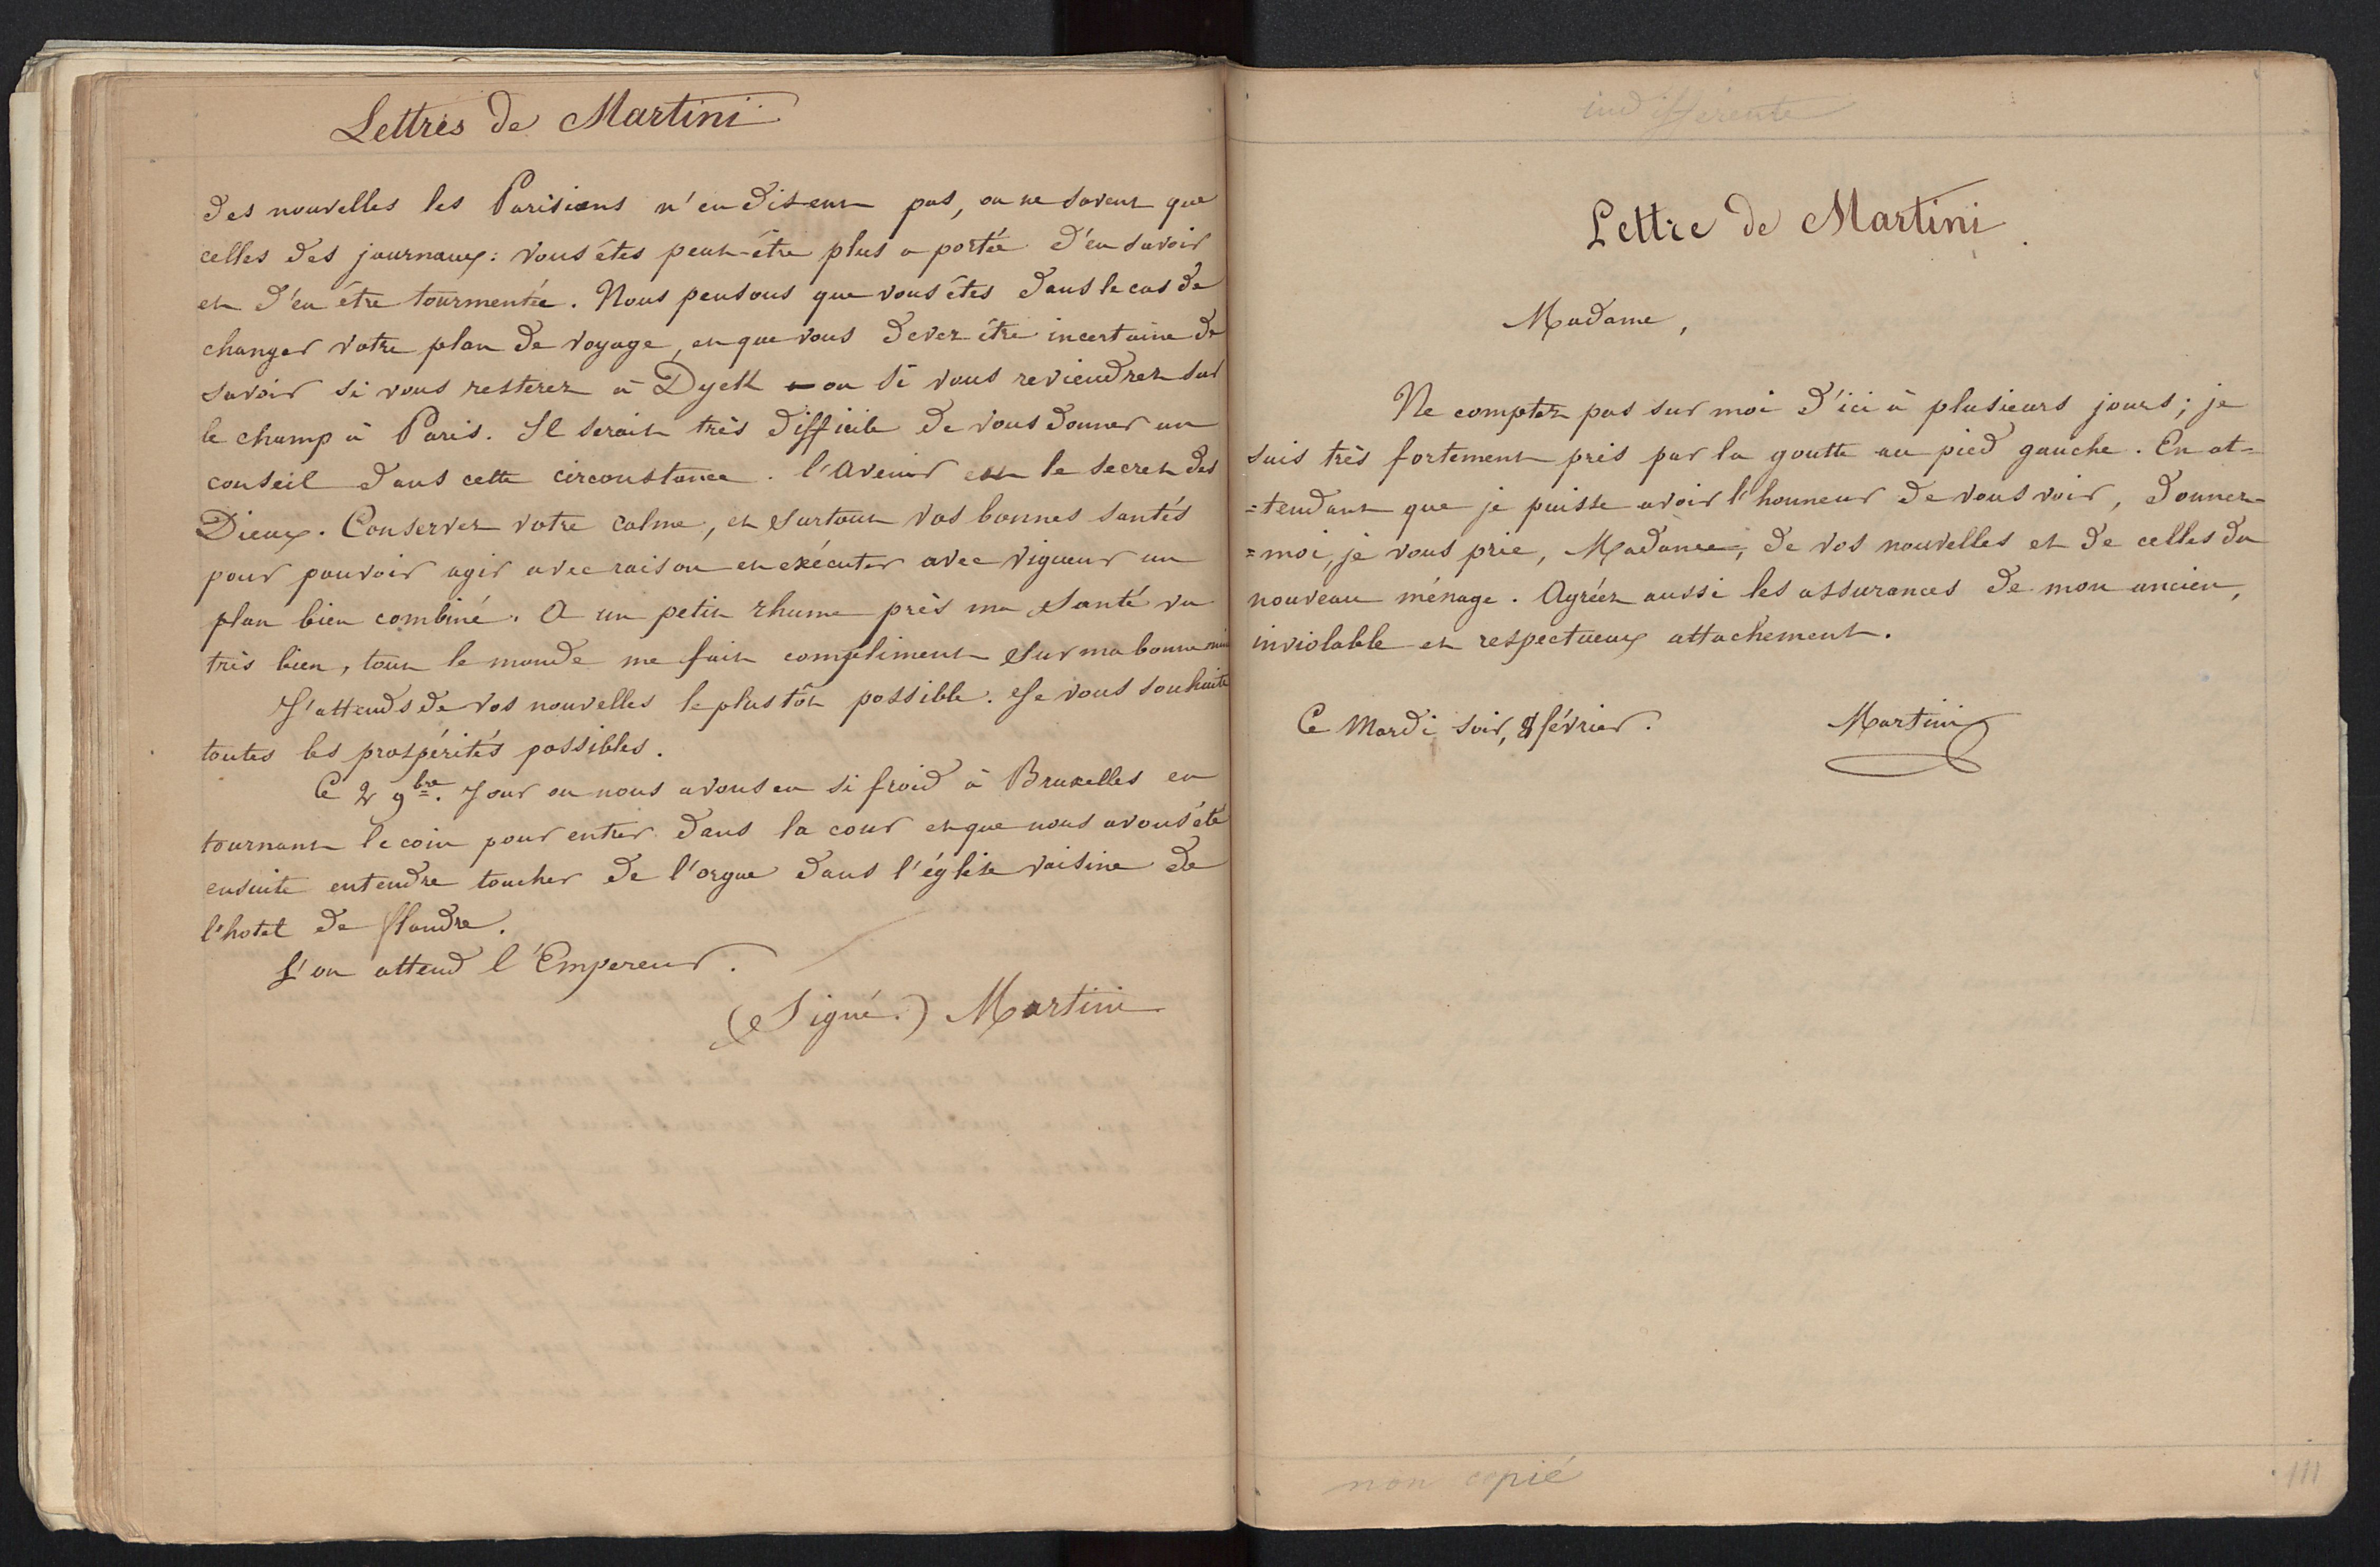 Lettres de Martini
des nouvelles les Parisiens n'en disent pas, ou ne savent que
celles des journaux: vous êtes peut-être plus a portée d'en savoir
et d'en être tourmentée. Nous pensons que vous êtes dans le cas de
changer votre plan de voyage, et que vous devez être incertaine de
savoir si vous resterez à Dyck ou si vous reviendrez sur
le champ à Paris. Il serait très difficile de vous donner un
conseil dans cette circonstance. l'avenir est le secret des
Dieux. Conservez votre calme, et surtout vos bonnes santés
pour pouvoir agir avec raison et exécuter avec vigueur un
plan bien combiné. A un petit rhume près ma santé va
très bien, tout le monde me fait compliment sur ma bonne mine
J'attends de vos nouvelles le plus tôt possible. Je vous souhaite
toutes les prospérités possibles.
Ce 2 9bre. Jour ou nous avons eu si froid à Bruxelles en
tournant le coin pour entrer dans la cour et que nous avons été
ensuite entendre toucher de l'orgue dans l'église voisine de
l'hotel de flandre.
L'on attend l'Empereur.
(Signé.) Martini
indifférente
Lettre de Martini.
Madame,
Ne comptez pas sur moi d'ici à plusieurs jours; je
suis très fortement pris par la goutte au pied gauche. En at=
=tendant que je puisse avoir l'honneur de vous voir, donnez=
=moi, je vous prie, Madame, de vos nouvelles et de celles du
nouveau ménage. Agréez aussi les assurances de mon ancien,
inviolable et respectueux attachement.
Ce Mardi soir, 8 février. Martini
non copié
111